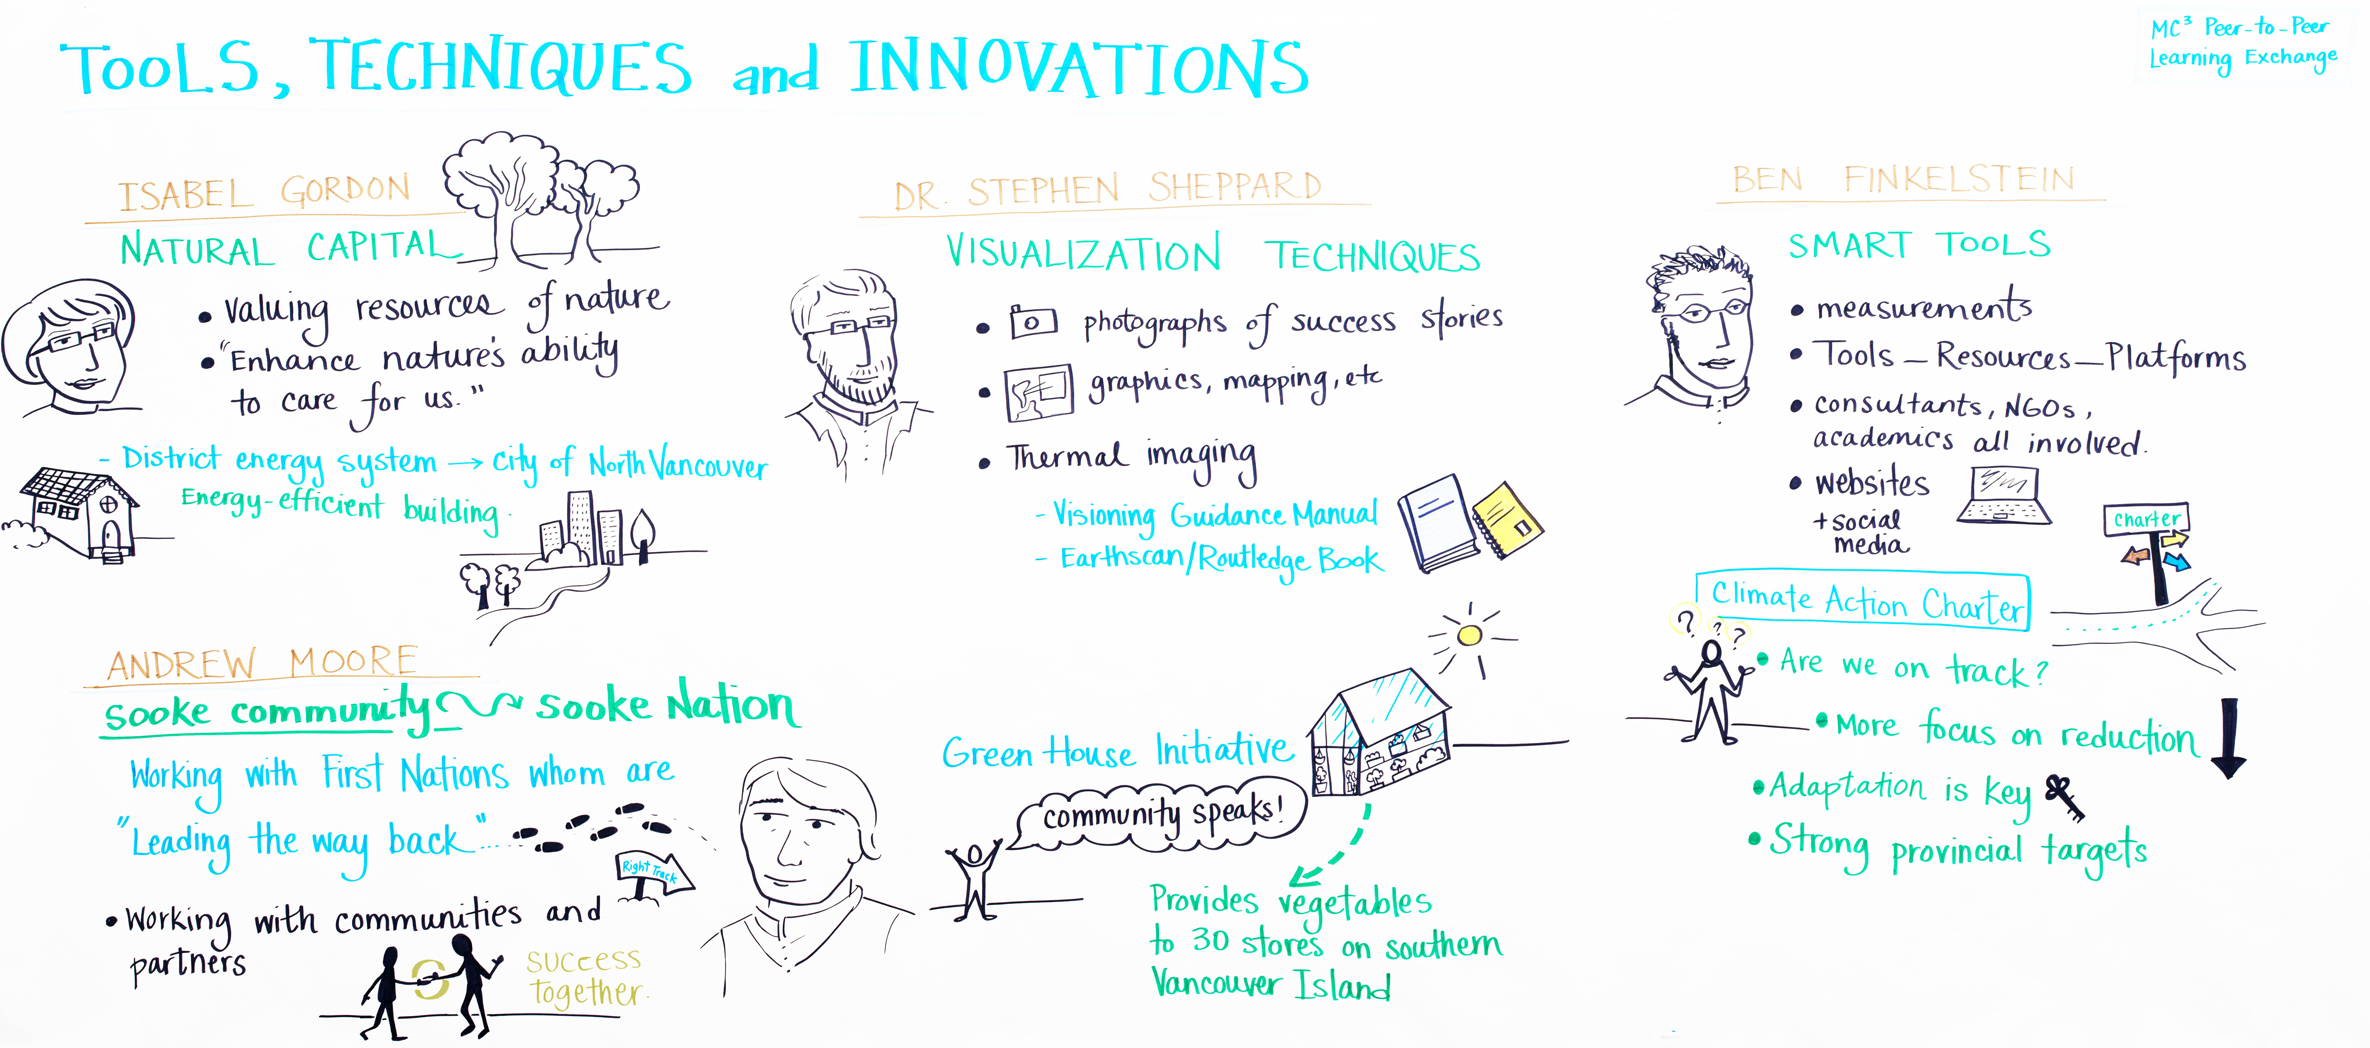 TOOLS, TECHNIQUES and INNOVATIONS
MC³ Peer-to-Peer
Learning Exchange
ISABEL GORDON
NATURAL CAPITAL
• Valuing resources of nature
• "Enhance nature's ability
to care for us."
- District energy system → city of North Vancouver
Energy-efficient building.
DR. STEPHEN SHEPPARD
VISUALIZATION TECHNIQUES
• photographs of success stories
• graphics, mapping, etc
• Thermal imaging
- Visioning Guidance Manual
- Earthscan/Routledge Book
BEN FINKELSTEIN
SMART TOOLS
• measurements
• Tools - Resources - Platforms
• consultants, NGOs,
academics all involved.
• websites
+ social
media
Charter
Climate Action Charter
? ? ?
• Are we on track?
• More focus on reduction
• Adaptation is key
• Strong provincial targets
ANDREW MOORE
sooke community sooke Nation
Working with First Nations whom are
"Leading the way back"...
Right Track
• Working with communities and
partners
success
together.
Green House Initiative
community speaks!
Provides vegetables
to 30 stores on southern
Vancouver Island